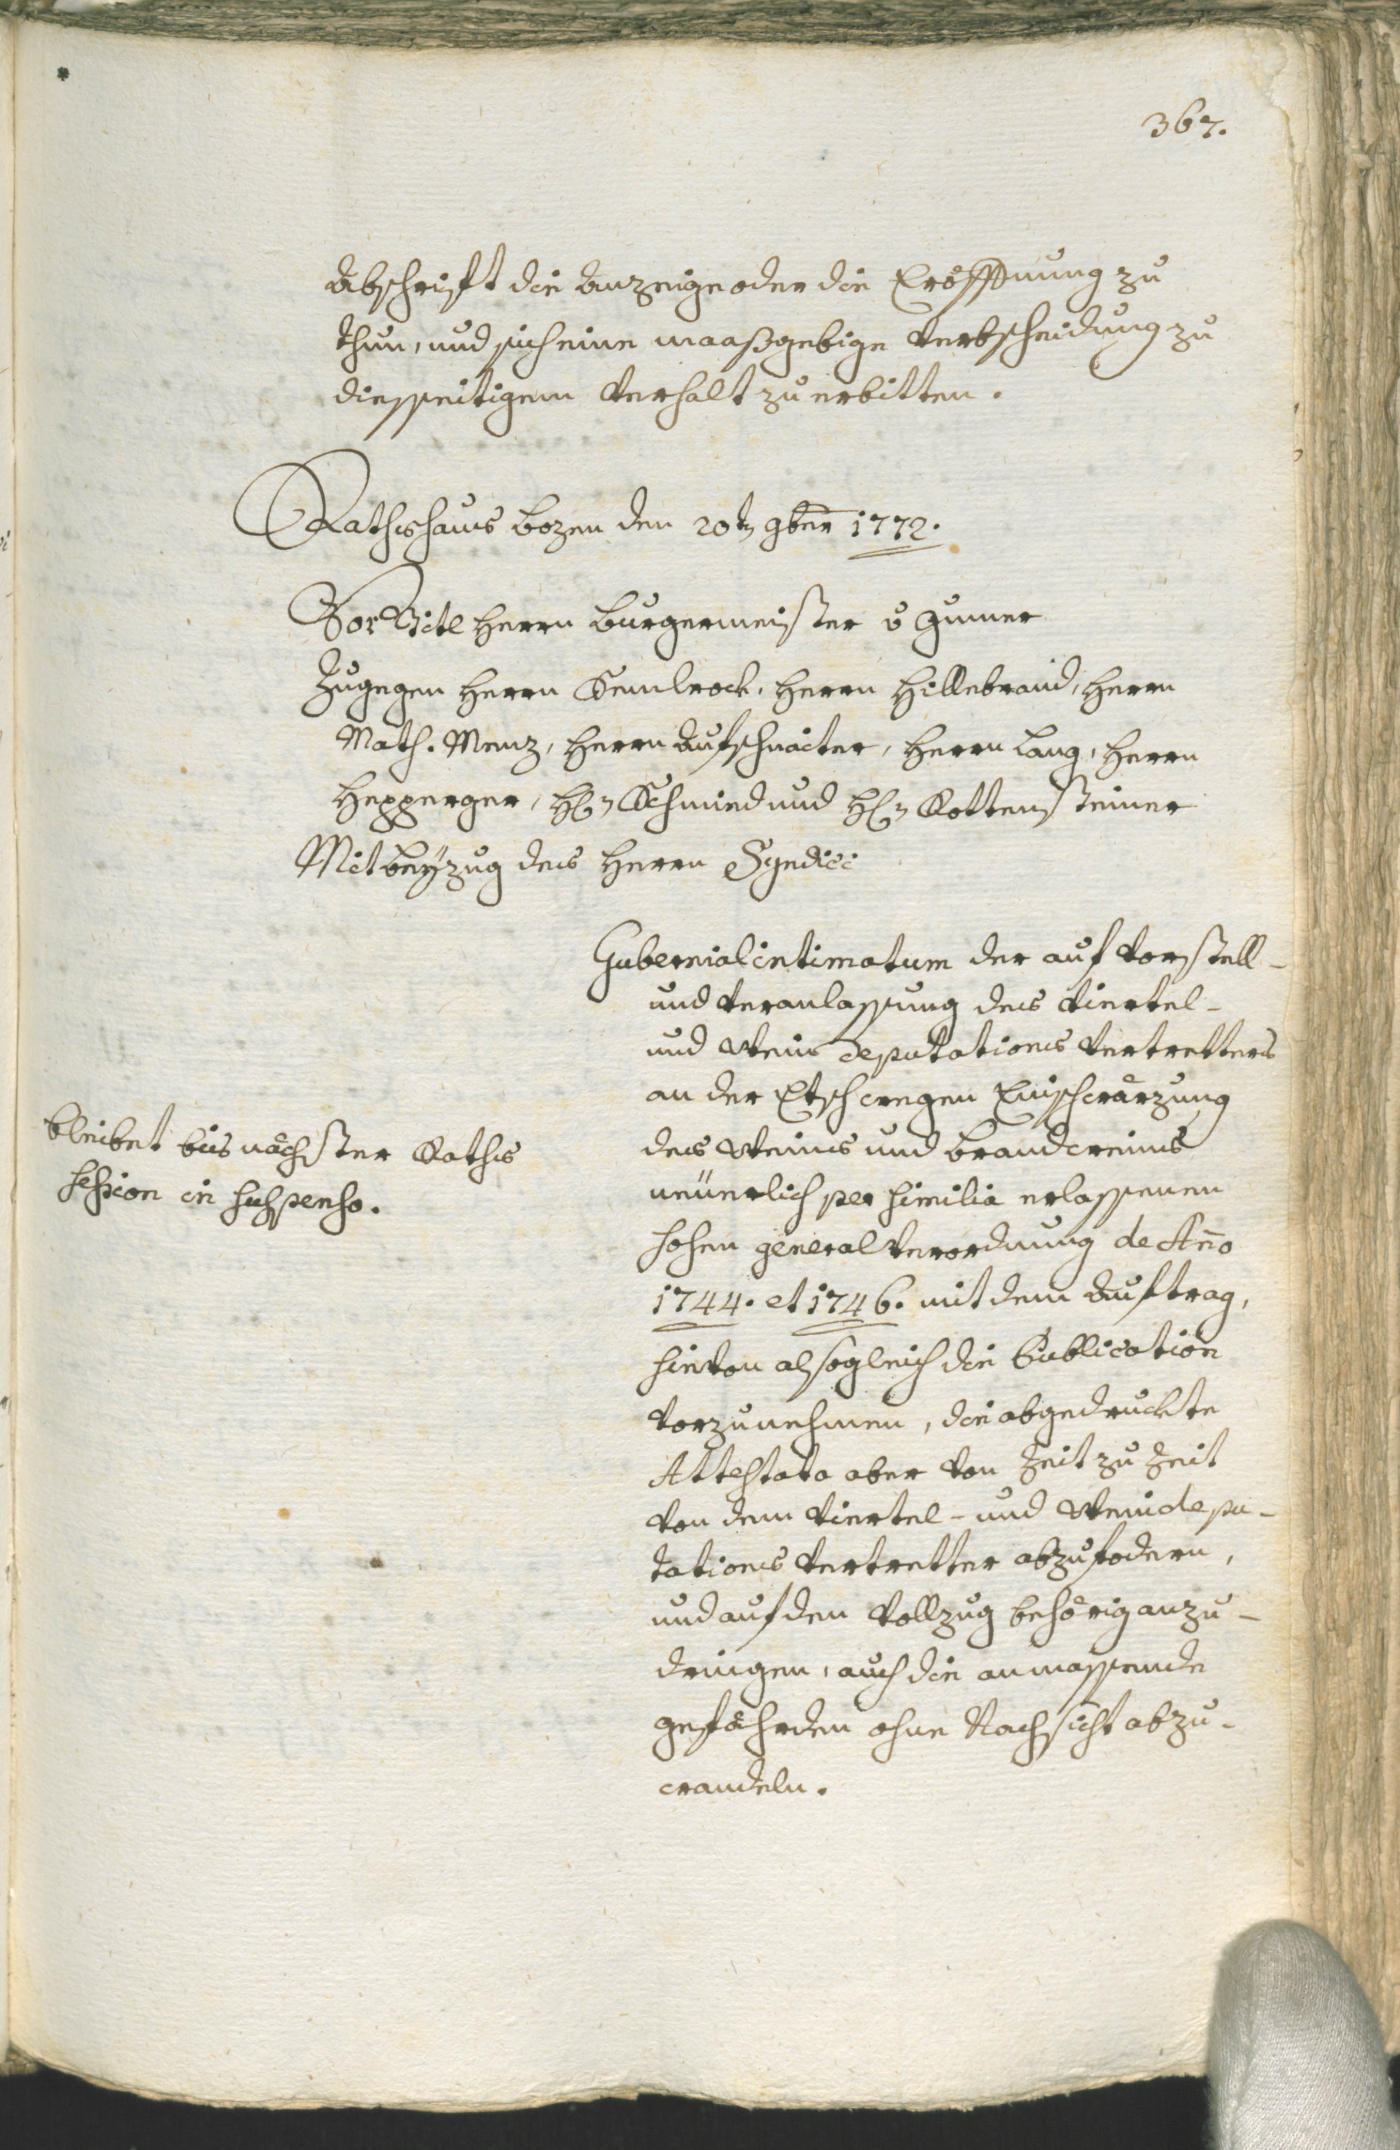 367.
Abschrift die Anzeige oder die Eröffnung zu
thun, und sich eine maaßgebige Verbscheidung zu
diesseitigem Verhalt zu erbitten.
Rathshaus Bozen den 20t 9ber 1772.
Vor Titl Herrn Burgermeister v Gumer
Zugegen Herrn Kemlrock, Herrn Hillebrand, Herrn
Math. Menz, Herrn Aufschnaiter, Herrn Lang, Herrn
Hepperger, H. Schmied und H. Rottensteiner
Mit beyzug des Herrn Syndici
Gubernial intimatum der auf Vorstell-
und Veranlassung des Viertel-
und Wein deputations Vertretters
an der Etsch wegen Einschwärzung
des Weins und Brandweins
neuerlich per similia erlassenen
hohen general Verordnung de Ao
1744. et 1746. mit dem Auftrag,
hievon alsogleich die Publication
vorzunehmen, die abgedruckte
Attestata aber von Zeit zu Zeit
von dem Viertel- und Weindepu-
tations Vertretter abzufodern,
und auf den Vollzug behörig anzu-
dringen, auch die anmassende
gefährden ohne Nachsicht abzu-
wandeln.
bleibet bis nächster Raths
session in suspenso.